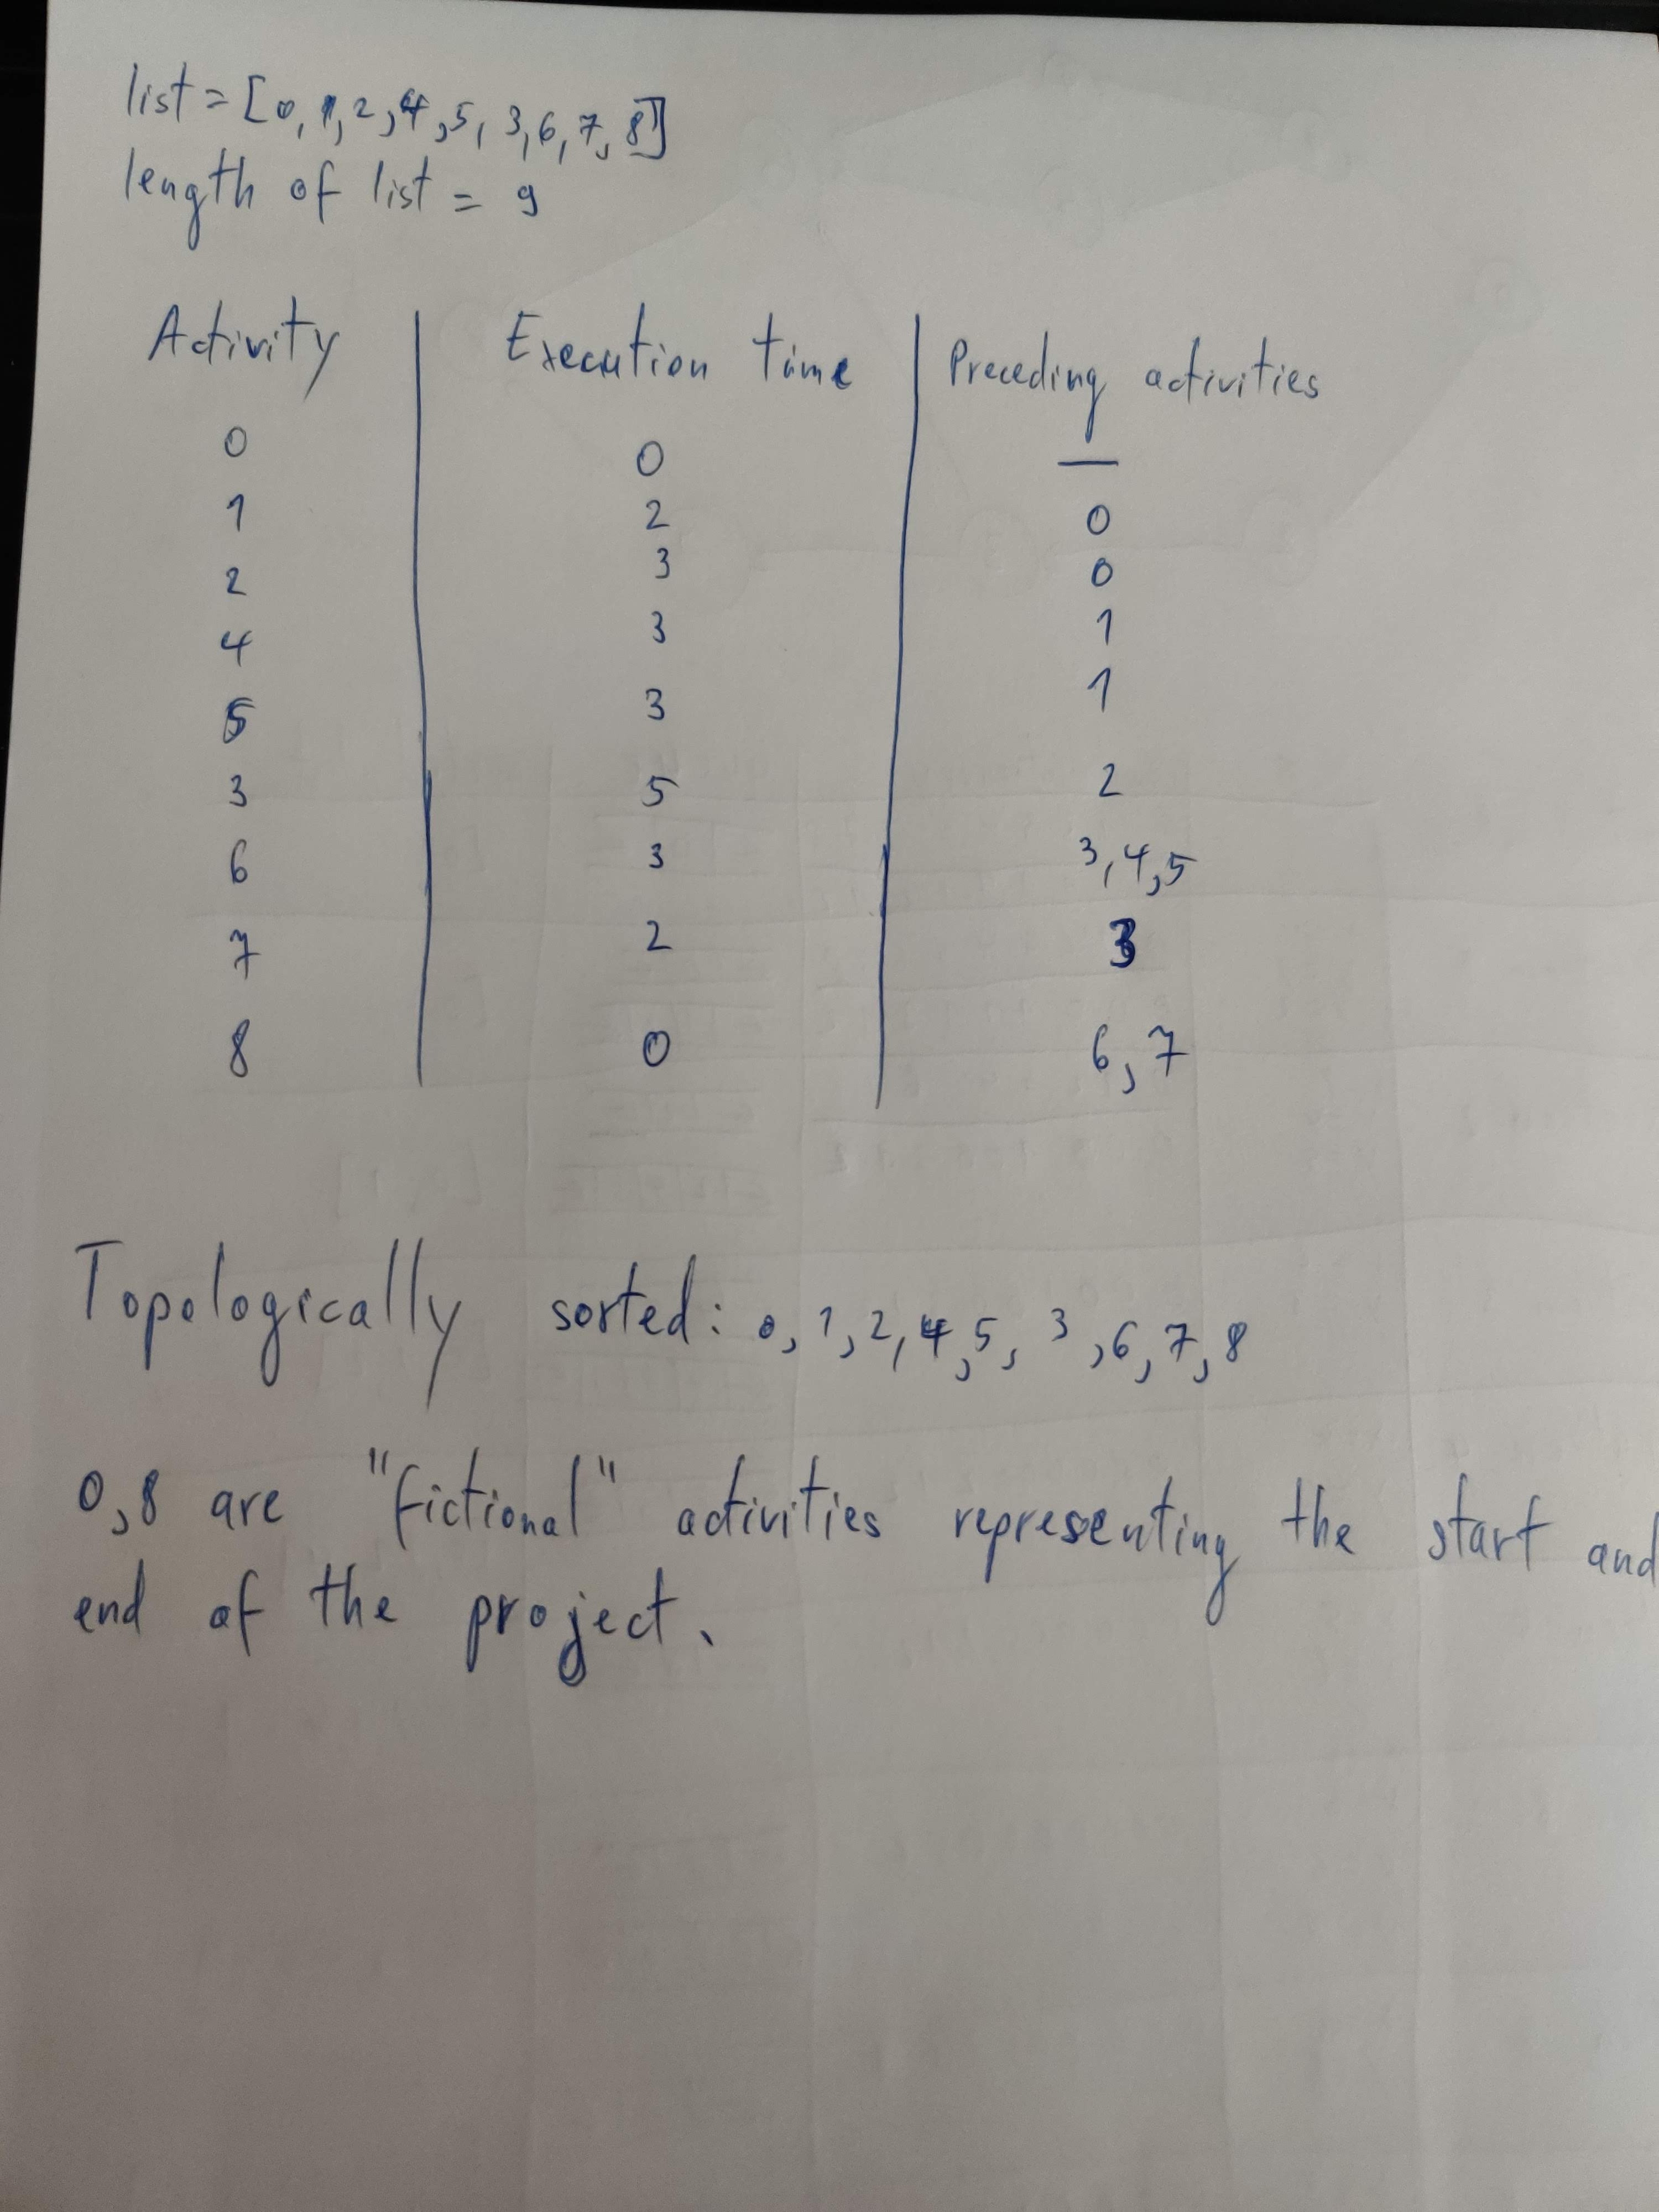 list = [0, 1, 2, 4, 5, 3, 6, 7, 8]
length of list = 9
Activity | Execution time | Preceding activities
0 | 0 | —
1 | 2 | 0
2 | 3 | 0
4 | 3 | 1
5 | 3 | 1
3 | 5 | 2
6 | 3 | 3,4,5
7 | 2 | 3
8 | 0 | 6,7
Topologically sorted: 0, 1, 2, 4, 5, 3, 6, 7, 8
0,8 are "fictional" activities representing the start and
end of the project.